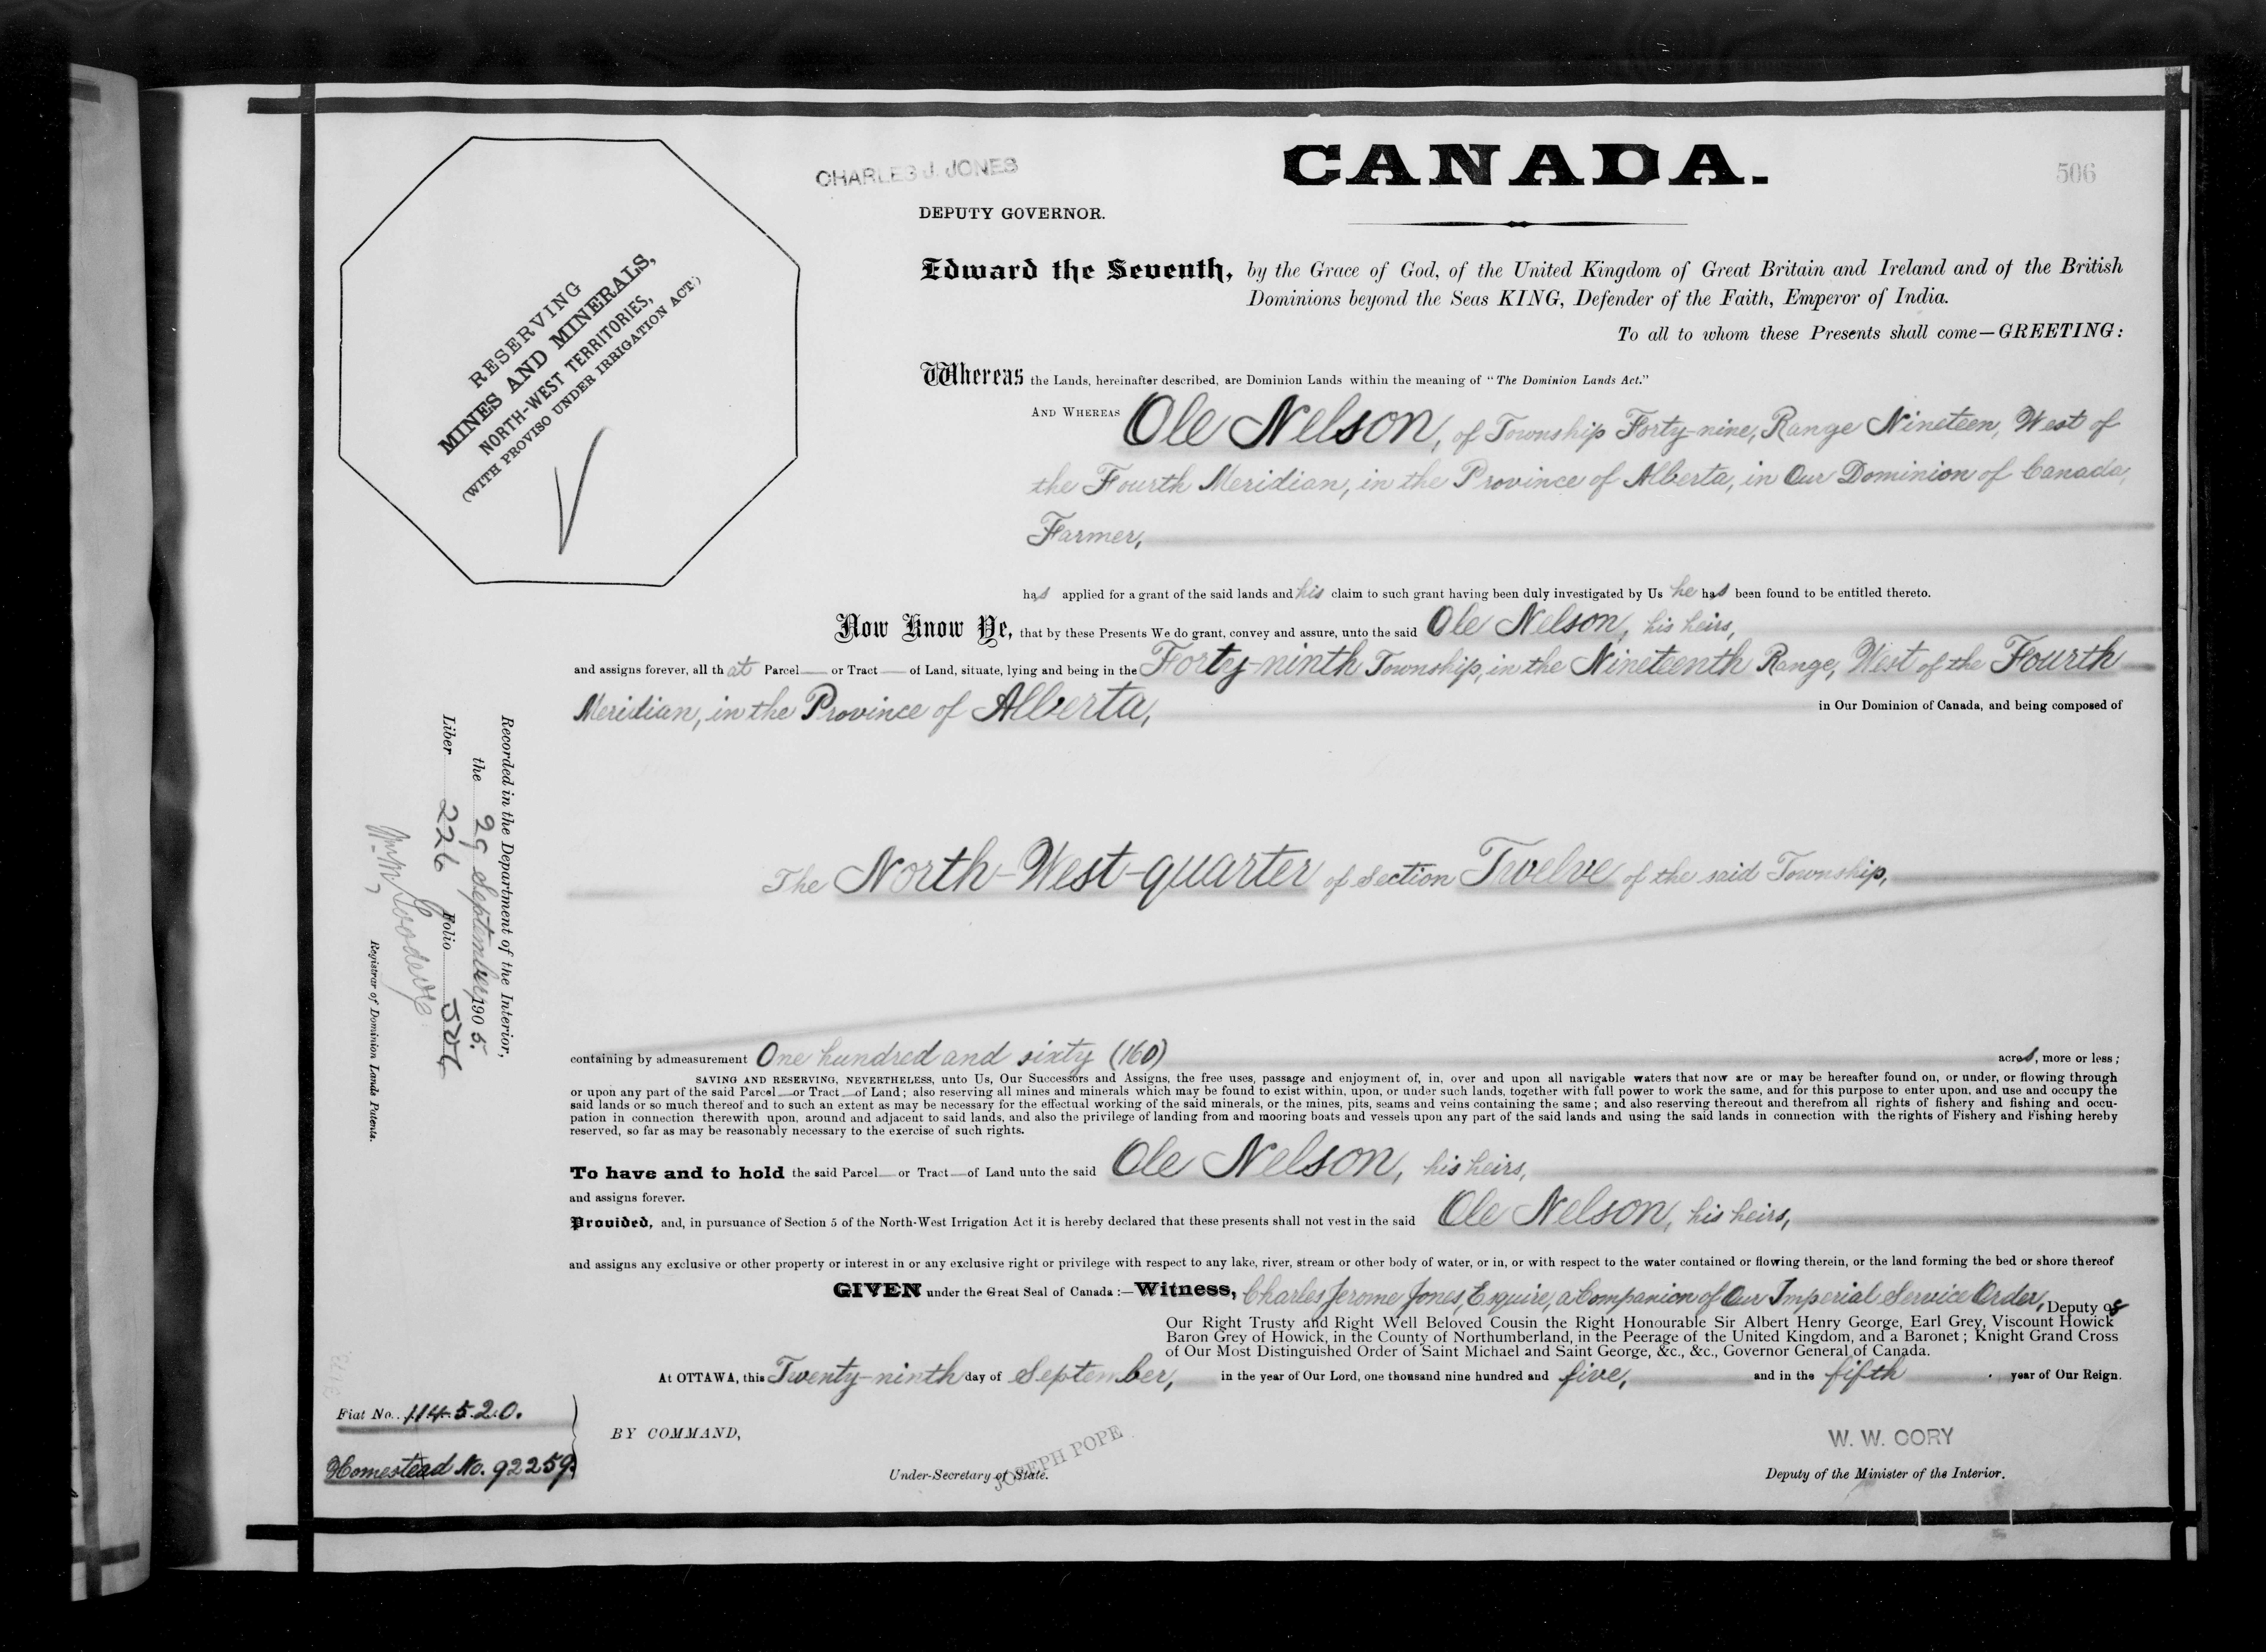 CHARLES J. JONES
DEPUTY GOVERNOR.
CANADA.
506
RESERVING
MINES AND MINERALS,
NORTH-WEST TERRITORIES,
(WITH PROVISO UNDER IRRIGATION ACT)
Edward the Seventh, by the Grace of God, of the United Kingdom of Great Britain and Ireland and of the British
Dominions beyond the Seas KING, Defender of the Faith, Emperor of India.
To all to whom these Presents shall come—GREETING:
Whereas the Lands, hereinafter described, are Dominion Lands within the meaning of "The Dominion Lands Act."
AND WHEREAS Ole Nelson, of Township Forty-nine, Range Nineteen, West of
the Fourth Meridian, in the Province of Alberta, in Our Dominion of Canada,
Farmer,
has applied for a grant of the said lands and his claim to such grant having been duly investigated by Us he has been found to be entitled thereto.
Now Know Ye, that by these Presents We do grant, convey and assure, unto the said Ole Nelson, his heirs,
and assigns forever, all that Parcel— or Tract— of Land, situate, lying and being in the Forty-ninth Township, in the Nineteenth Range, West of the Fourth
Meridian, in the Province of Alberta, in Our Dominion of Canada, and being composed of
The North-West-quarter of Section Twelve of the said Township,
containing by admeasurement One hundred and sixty (160) acres, more or less;
SAVING AND RESERVING, NEVERTHELESS, unto Us, Our Successors and Assigns, the free uses, passage and enjoyment of, in, over and upon all navigable waters that now are or may be hereafter found on, or under, or flowing through
or upon any part of the said Parcel—or Tract—of Land; also reserving all mines and minerals which may be found to exist within, upon, or under such lands, together with full power to work the same, and for this purpose to enter upon, and use and occupy the
said lands or so much thereof and to such an extent as may be necessary for the effectual working of the said minerals, or the mines, pits, seams and veins containing the same; and also reserving thereout and therefrom all rights of fishery and fishing and occu-
pation in connection therewith upon, around and adjacent to said lands, and also the privilege of landing from and mooring boats and vessels upon any part of the said lands and using the said lands in connection with the rights of Fishery and Fishing hereby
reserved, so far as may be reasonably necessary to the exercise of such rights.
To have and to hold the said Parcel— or Tract—of Land unto the said Ole Nelson, his heirs,
and assigns forever.
Provided, and, in pursuance of Section 5 of the North-West Irrigation Act it is hereby declared that these presents shall not vest in the said Ole Nelson, his heirs,
and assigns any exclusive or other property or interest in or any exclusive right or privilege with respect to any lake, river, stream or other body of water, or in, or with respect to the water contained or flowing therein, or the land forming the bed or shore thereof
GIVEN under the Great Seal of Canada:—Witness, Charles Jerome Jones, Esquire, a Companion of Our Imperial Service Order, Deputy of
Our Right Trusty and Right Well Beloved Cousin the Right Honourable Sir Albert Henry George, Earl Grey, Viscount Howick
Baron Grey of Howick, in the County of Northumberland, in the Peerage of the United Kingdom, and a Baronet; Knight Grand Cross
of Our Most Distinguished Order of Saint Michael and Saint George, &c., &c., Governor General of Canada.
At OTTAWA, this Twenty-ninth day of September, in the year of Our Lord, one thousand nine hundred and five, and in the fifth year of Our Reign.
BY COMMAND,
JOSEPH POPE
Under-Secretary of State.
W. W. CORY
Deputy of the Minister of the Interior.
Recorded in the Department of the Interior,
the 29 September, 1905.
Liber 226 Folio 506
Registrar of Dominion Lands Patents.
Fiat No. 114520.
Homestead No. 92259.